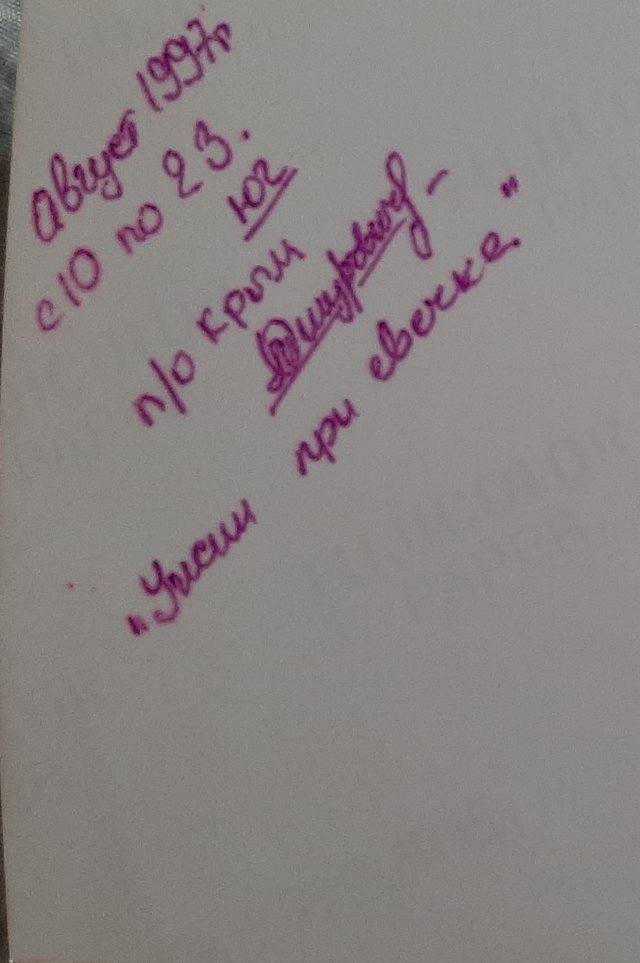 Август 1997г
с 10 по 23.
Юг
п/о Крым
"Ужин при свечке"